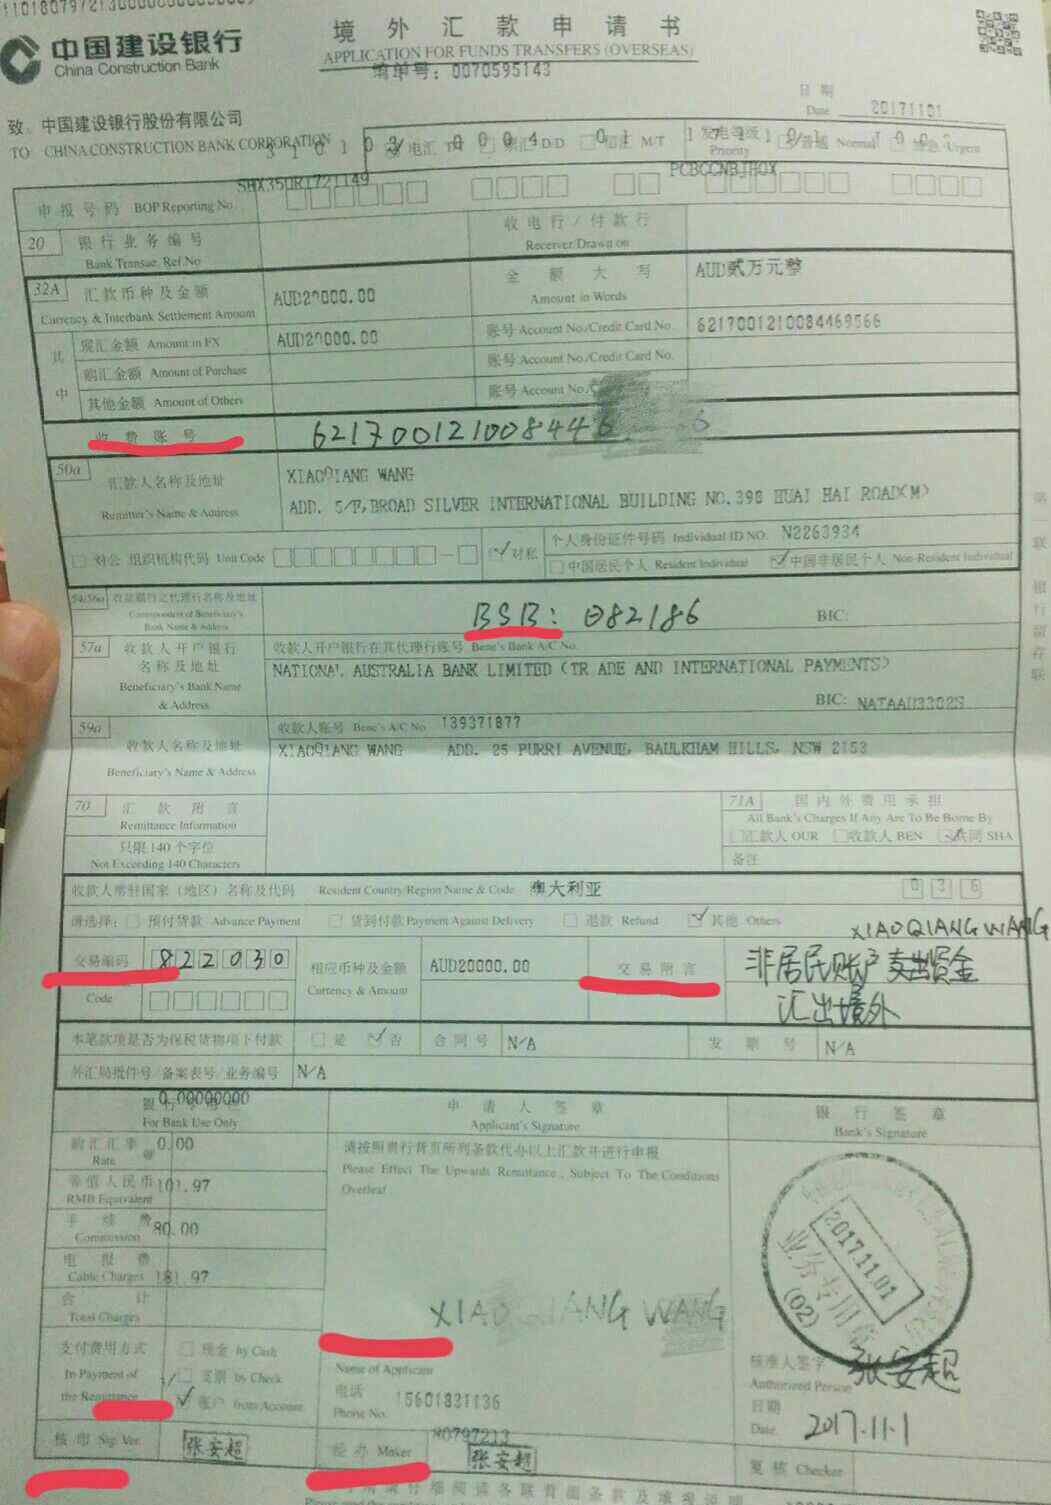 中国建设银行
China Construction Bank
境外汇款申请书
APPLICATION FOR FUNDS TRANSFERS (OVERSEAS)
编单号: 0070595143
日期
Date 20171101
致: 中国建设银行股份有限公司
TO CHINA CONSTRUCTION BANK CORPORATION
电汇 T/T D/D 信汇 M/T
发电等级
Priority
普通 Normal Urgent
申报号码 BOP Reporting No.
20 银行业务编号
Bank Transac. Ref No
收电行/付款行
Receiver/Drawn on
32A 汇款币种及金额
Currency & Interbank Settlement Amount
AUD20000.00
金额大写
Amount in Words
AUD贰万元整
其中
现汇金额 Amount in FX AUD20000.00
账号 Account No./Credit Card No. 6217001210084469566
购汇金额 Amount of Purchase
账号 Account No./Credit Card No.
其他金额 Amount of Others
账号 Account No.
收费账号 621700121008446 6
50a 汇款人名称及地址
Remitter's Name & Address
XIAOQIANG WANG
ADD. 5/F,BROAD SILVER INTERNATIONAL BUILDING NO.398 HUAI HAI ROAD(M)
对公 组织机构代码 Unit Code
对私
个人身份证件号码 Individual ID NO. N2263934
中国居民个人 Resident Individual
中国非居民个人 Non-Resident Individual
54/56a 收款银行之代理行名称及地址
Correspondent of Beneficiary's
Bank Name & Address
BSB: 082186
BIC:
57a 收款人开户银行
名称及地址
Beneficiary's Bank Name
& Address
收款人开户银行在其代理行账号 Bene's Bank A/C No.
NATIONAL AUSTRALIA BANK LIMITED (TR ADE AND INTERNATIONAL PAYMENTS)
BIC: NATAAU3302S
59a 收款人名称及地址
Beneficiary's Name & Address
收款人账号 Bene's A/C No 139371877
XIAOQIANG WANG ADD. 25 PURRI AVENUE, BAULKHAM HILLS, NSW 2153
70 汇款附言
Remittance Information
只限140个字位
Not Exceeding 140 Characters
71A 国内外费用承担
All Bank's Charges If Any Are To Be Borne By
汇款人 OUR 收款人 BEN 共同 SHA
备注
收款人常驻国家(地区)名称及代码 Resident Country/Region Name & Code 澳大利亚 036
请选择: 预付货款 Advance Payment 货到付款 Payment Against Delivery 退款 Refund 其他 Others
XIAOQIANG WANG
交易编码
Code
822030
相应币种及金额
Currency & Amount
AUD20000.00
交易附言
非居民账户支出资金
汇出境外
本笔款项是否为保税货物项下付款 是 否 合同号 N/A 发票号 N/A
外汇局批件号/备案表号/业务编号 N/A
0.00000000
For Bank Use Only
申请人签章
Applicant's Signature
银行签章
Bank's Signature
购汇汇率 @ 0.00
Rate
等值人民币 101.97
RMB Equivalent
手续费 80.00
Commission
电报费
Cable Charges 181.97
合计
Total Charges
请按照贵行背页所列条款代办以上汇款并进行申报
Please Effect The Upwards Remittance, Subject To The Conditions
Overleaf
2017.11.01
业务专用章
(02)
XIAOQIANG WANG
支付费用方式
In Payment of
the Remittance
现金 by Cash
支票 by Check
账户 from Account
Name of Applicant
电话
Phone No. 15601831136
核准人签字 张安超
Authorized Person
日期
Date 2017.11.1
核印 Sig. Ver. 张安超
经办 Maker 张安超
复核 Checker